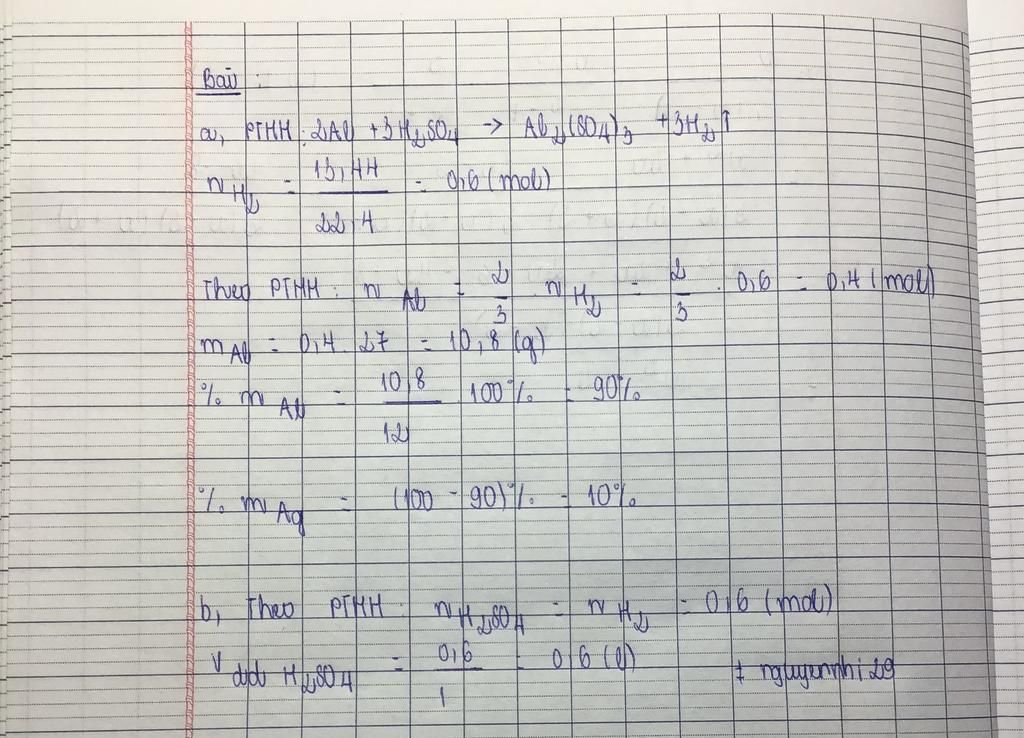 Bài :
a, PTHH : 2Al + 3H₂SO₄ → Al₂(SO₄)₃ + 3H₂↑
n H₂ = 13,44 / 22,4 = 0,6 (mol)
Theo PTHH : n Al = 2/3 n H₂ = 2/3 . 0,6 = 0,4 (mol)
m Al = 0,4 . 27 = 10,8 (g)
% m Al = 10,8 / 12 . 100% = 90%
% m Ag = (100 - 90)% = 10%
b, Theo PTHH : n H₂SO₄ = n H₂ = 0,6 (mol)
V dd H₂SO₄ = 0,6 / 1 = 0,6 (l)
# nguyennhi29